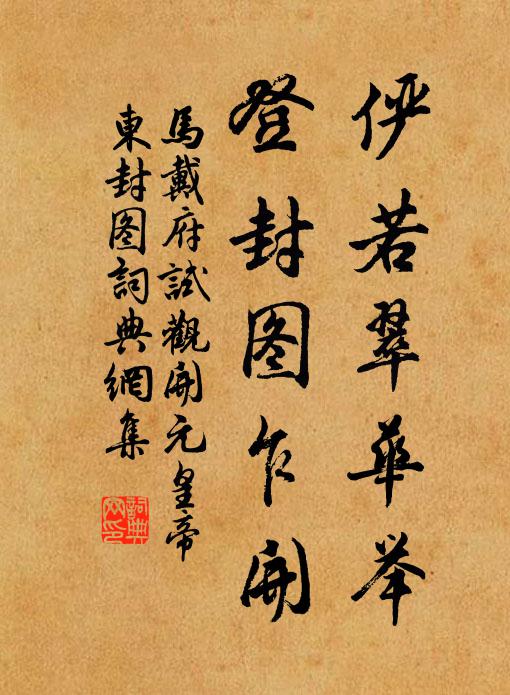 俨若翠華举
登封图乍開
馬戴府試觀開元皇帝
東封图詞典網集
詞典网印